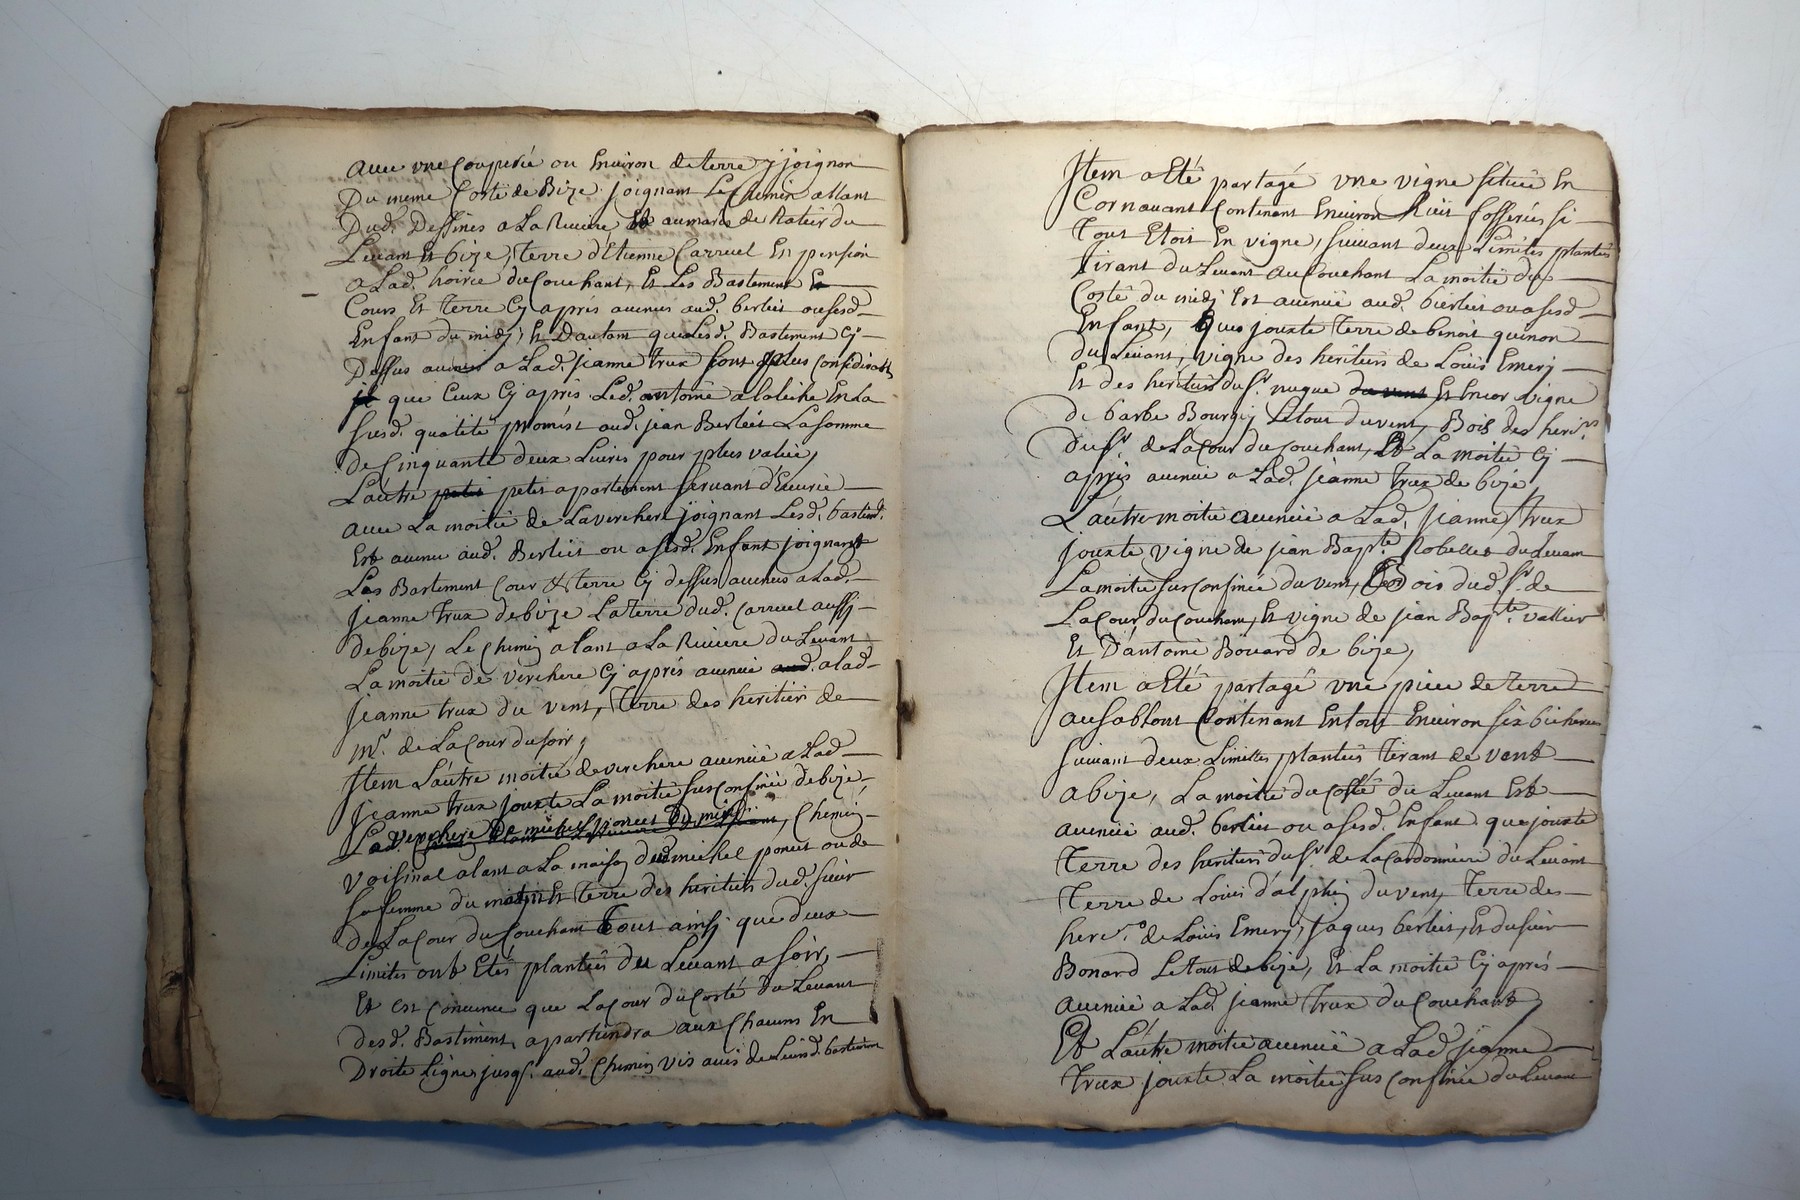 avec une Couperée ou Environ de terre y joignon
Du meme Costé de Bize joignant Le Chemin allant
Dud. Dessines a La Riviere Et au marc de Ratier du
Levant Et bize, terre d'Etienne Carruel En pension
a Lad. hoirie du Couchant, Et Les Bastiment Et
Cours Et terre Cy après avenus aud. berliet ou sesd
Enfant du midy, Et Dautant que Lesd. Bastiment Cy
Dessus avenus a Lad. jeanne trux sont plus Considerabl
que Ceux Cy après Led. antoine alaleiche En La
susd. qualité promest aud. jean Berliet La somme
De Cinquante deux Livres pour plus value,
L'autre petit apartement servant d'Ecurie
avec La moitié de La verchere joignant Lesd. bastimt.
Est avenu aud. Berliet ou a sesd. Enfant joignant
Les Bastiment Cour & terre Cy dessus avenus a Lad.
jeanne trux de bize La terre dud. Carruel aussy
de bize, Le Chemin alant a La Riviere du Levant
La moitié de verchere Cy après avenue aud. a lad
jeanne trux du vent, Terre des heritier de
Mr. de La Cour du soir,
Item L'autre moitié de verchere avenue a Lad
jeanne trux jouxte La moitié susconfinée de bize
La verchere de michel poncet du midy, Chemin
voisinal alant a La maison dud michel poncet ou de
sa femme du Et Terre des heritiers dud. sieur
de La Cour du Couchant Tout ainsy que deux
Limites ont Etés plantées du Levant a soir,
Et est Convenu que La Cour du Costé du Levant
desd. Bastiment, apartiendra aux Chacuns En
Droite Ligne jusq. aud. Chemin vis avis de Leursd. bastiment
Item a Eté partagé une vigne située En
Cornavant Contenant Environ huit fosserées si
Tout Etoit En vigne, suivant deux Limites plantés
tirant du Levant au Couchant La moitié du
Costé du midy Est avenuë aud. berliet ou a sesd
Enfant, Que jouxte Terre de benoit quinon
du Levant, vigne des heritiers de Loüis Emery
Et des heritiers du Sr. nugue du vent Et Encor vigne
de barbe Bourgey Le tout du vent, Bois des herirs.
du Sr. de La Cour du Couchant, Et La moitié Cy
après avenue a Lad. jeanne Trux de bize,
L'autre moitié avenuë a Lad. jeanne Trux
jouxte vigne de jean Bapte. Robellet du Levant
La moitié susconfinée du vent, Bois dud. Sr. de
La Cour, du Couchant, Et vigne de jean Bapte. vallier
Et D'antoine Boüard de bize,
Item a Eté partagé une piece de terre
au sablont Contenant En tout Environ six bicherees
suivant deux Limittes plantées tirant de vent
a bize, La moitié du Costé du Levant Est
avenuë aud. berliet ou a sesd. Enfant que jouxte
Terre des heritiers du Sr. de La Cardonniere du Levant
Terre de Louis d'alphin du vent, Terre des
herers. de Loüis Emery, jaques berliet, Et du sieur
Bonard Le tout de bize, Et La moitié Cy après
avenuë a Lad. jeanne Trux du Couchant,
Et L'autre moitié avenuë a Lad. jeanne
Trux jouxte La moitié sus Confinée du Levant